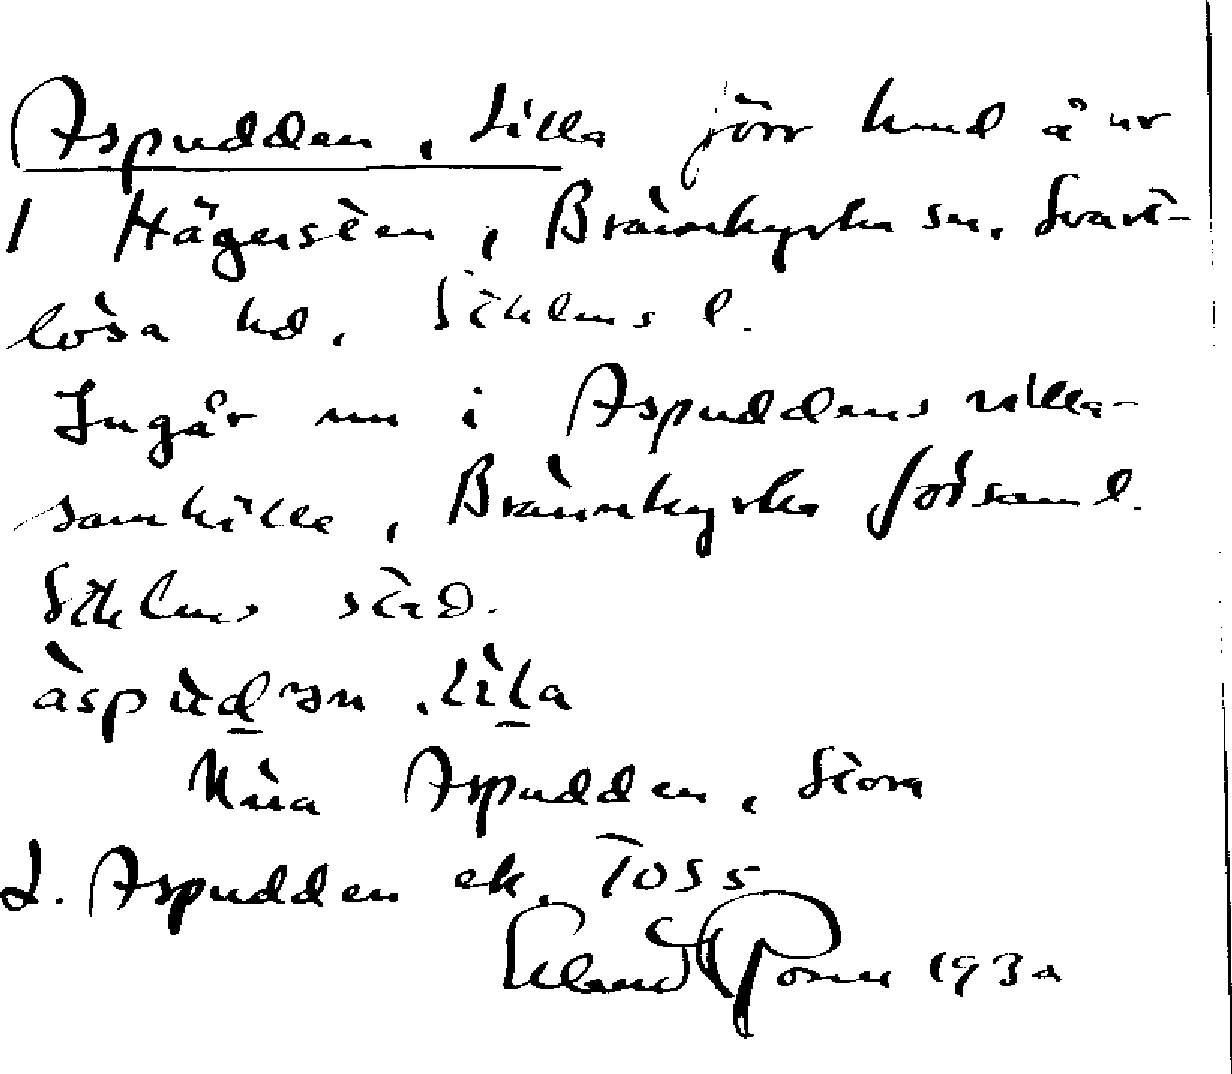 Aspudden, Lilla förr lund å nr
1 Hägersten, Brännkyrka sn. Svart-
lösa hd, Sthlms l.
Ingår nu i Aspuddens villa-
samhälle, Brännkyrka förs aml.
Sthlms stad.
àspùdən, lìla
Nära Aspudden, Stora
L. Aspudden ek, Toss
1930